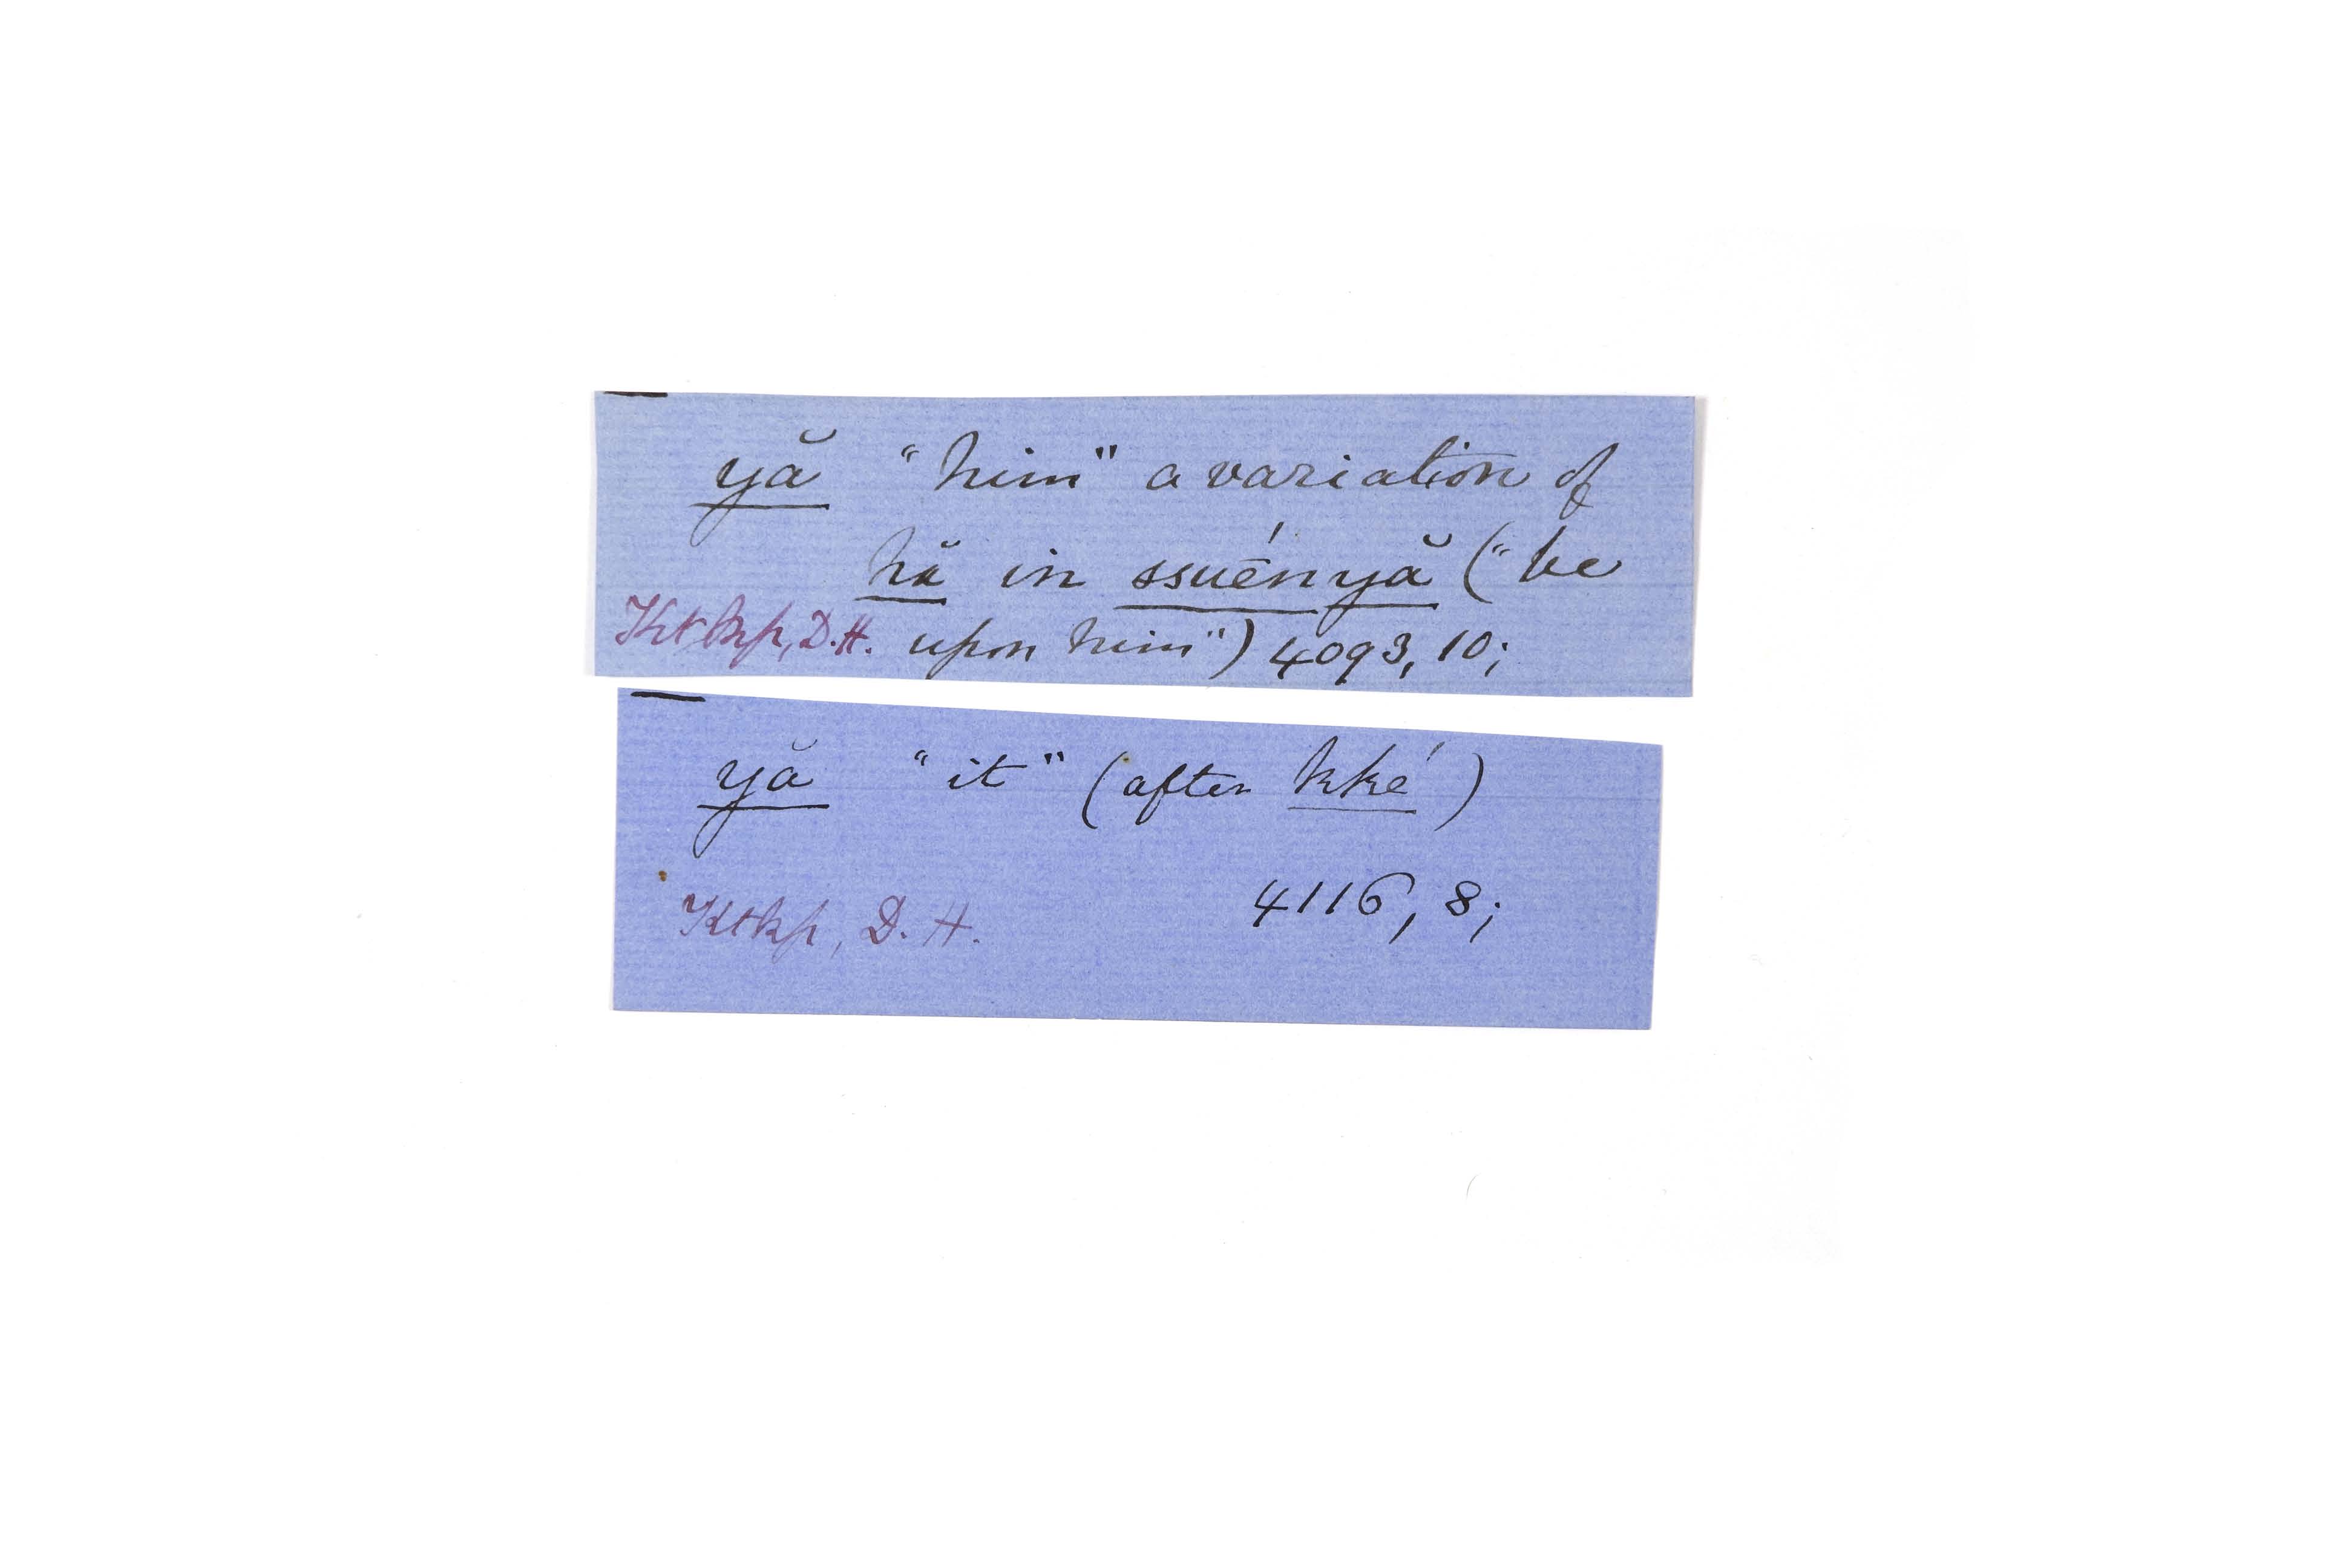 yă "him" a variation of
hă in ssuḗnyă ("be
Kt bkp, D.H. upon him") 4093, 10;
yă "it" (after kké)
4116, 8;
Ktkp, D. H.